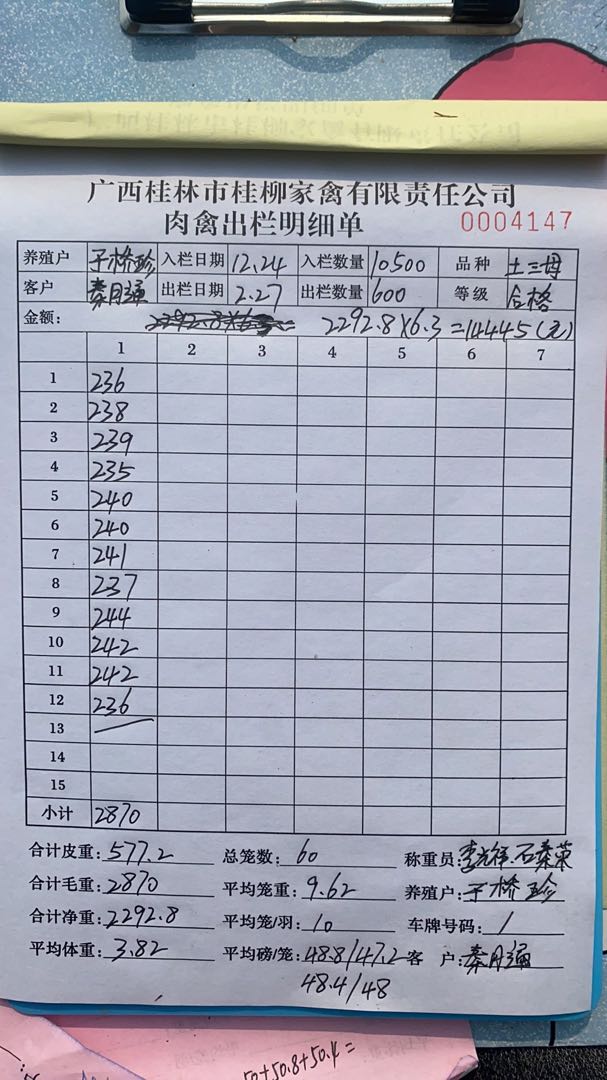 广西桂林市桂柳家禽有限责任公司
肉禽出栏明细单 0004147
养殖户 于桥珍 入栏日期 12.24 入栏数量 10500 品种 土三母
客户 秦月通 出栏日期 2.27 出栏数量 600 等级 合格
金额: 2292.8×6.3=14445(元)
1 2 3 4 5 6 7
1 236
2 238
3 239
4 235
5 240
6 240
7 241
8 237
9 244
10 242
11 242
12 236
13
14
15
小计 2870
合计皮重: 577.2 总笼数: 60 称重员:
合计毛重: 2870 平均笼重: 9.62 养殖户: 于桥珍
合计净重: 2292.8 平均笼/羽: 10 车牌号码: /
平均体重: 3.82 平均磅/笼: 48.8/47.2 客 户: 秦月通
48.4/48
50+50.8+50.4=